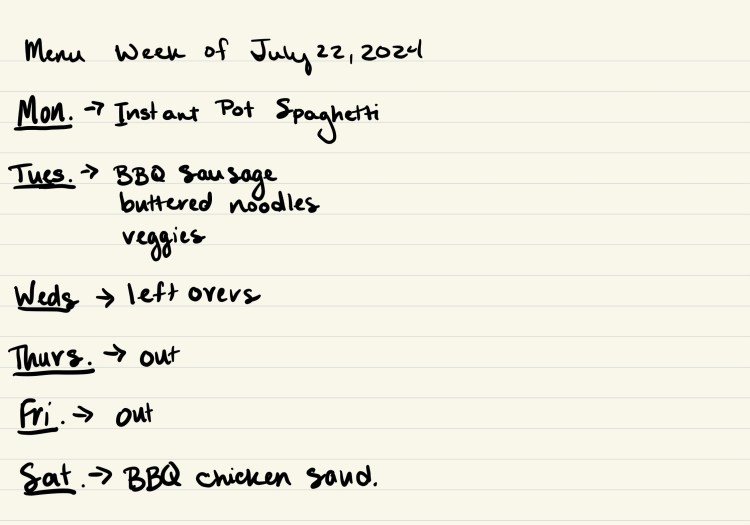 Menu Week of July 22, 2024
Mon. → Instant Pot Spaghetti
Tues. → BBQ Sausage
buttered noodles
veggies
Weds → left overs
Thurs. → out
Fri. → out
Sat. → BBQ chicken sand.